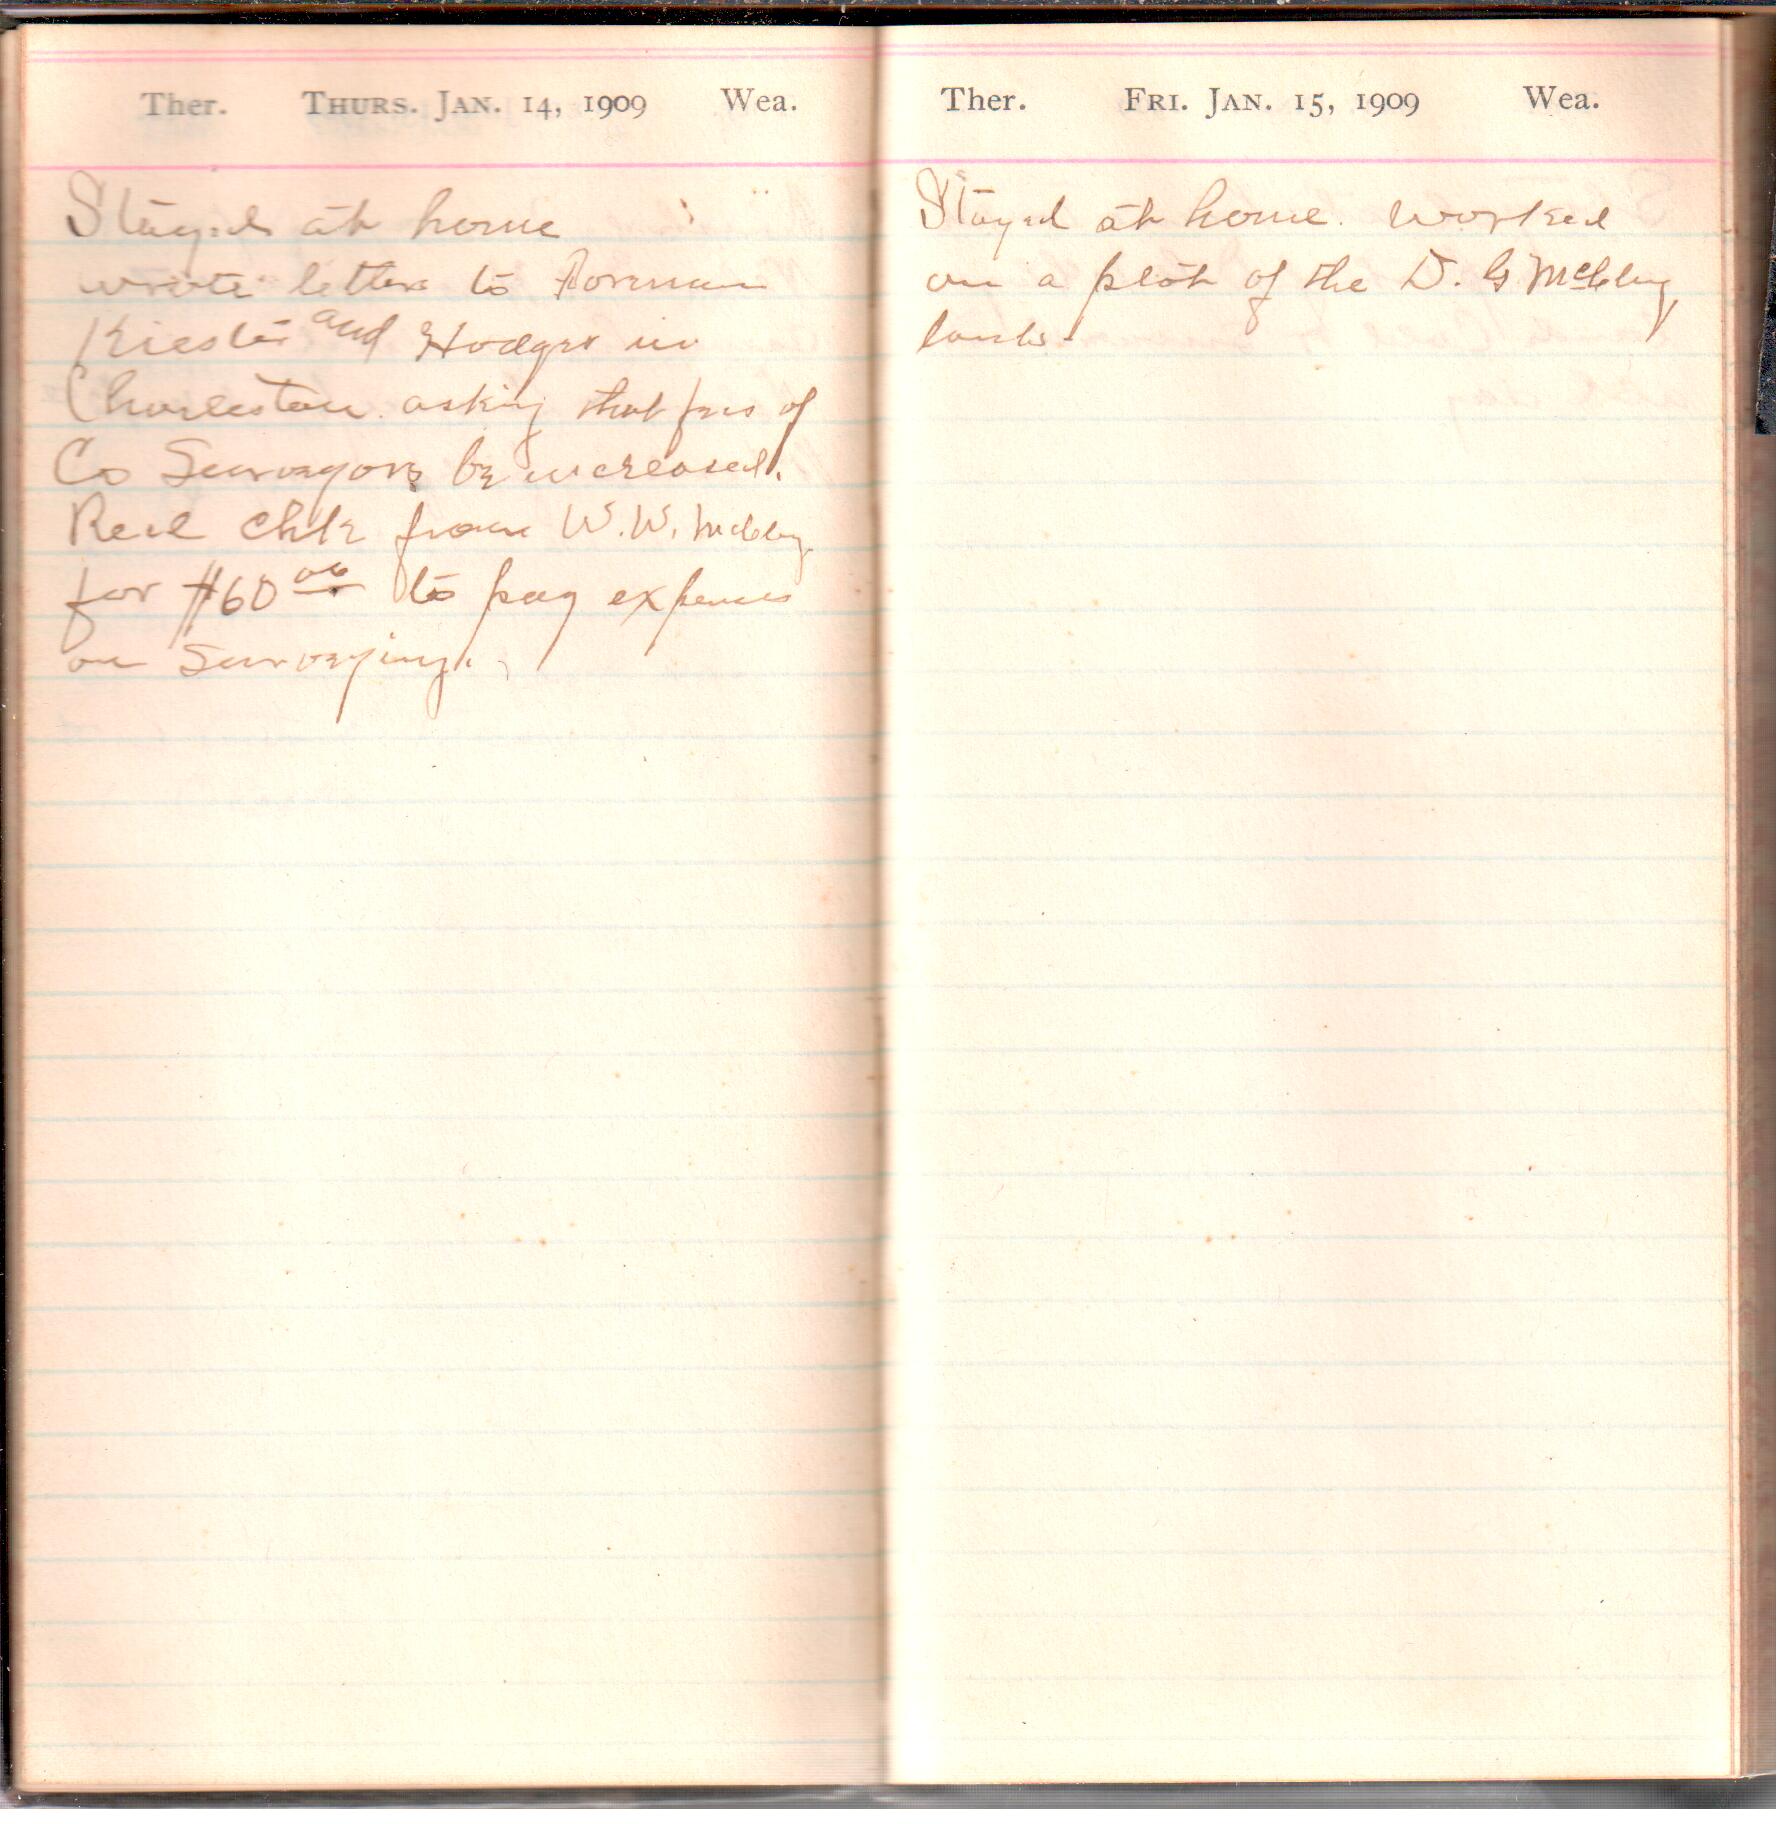 Ther. Thurs. Jan. 14, 1909 Wea.
Stayed at home
wrote letters to
and Hodges in
Charleston asking that fees of
Co Surveyors be increased.
Recd chk from W. W.
for $60 00 to pay expenses
on Surveying.
Ther. Fri. Jan. 15, 1909 Wea.
Stayed at home. Worked
on a plot of the D. G
lands.